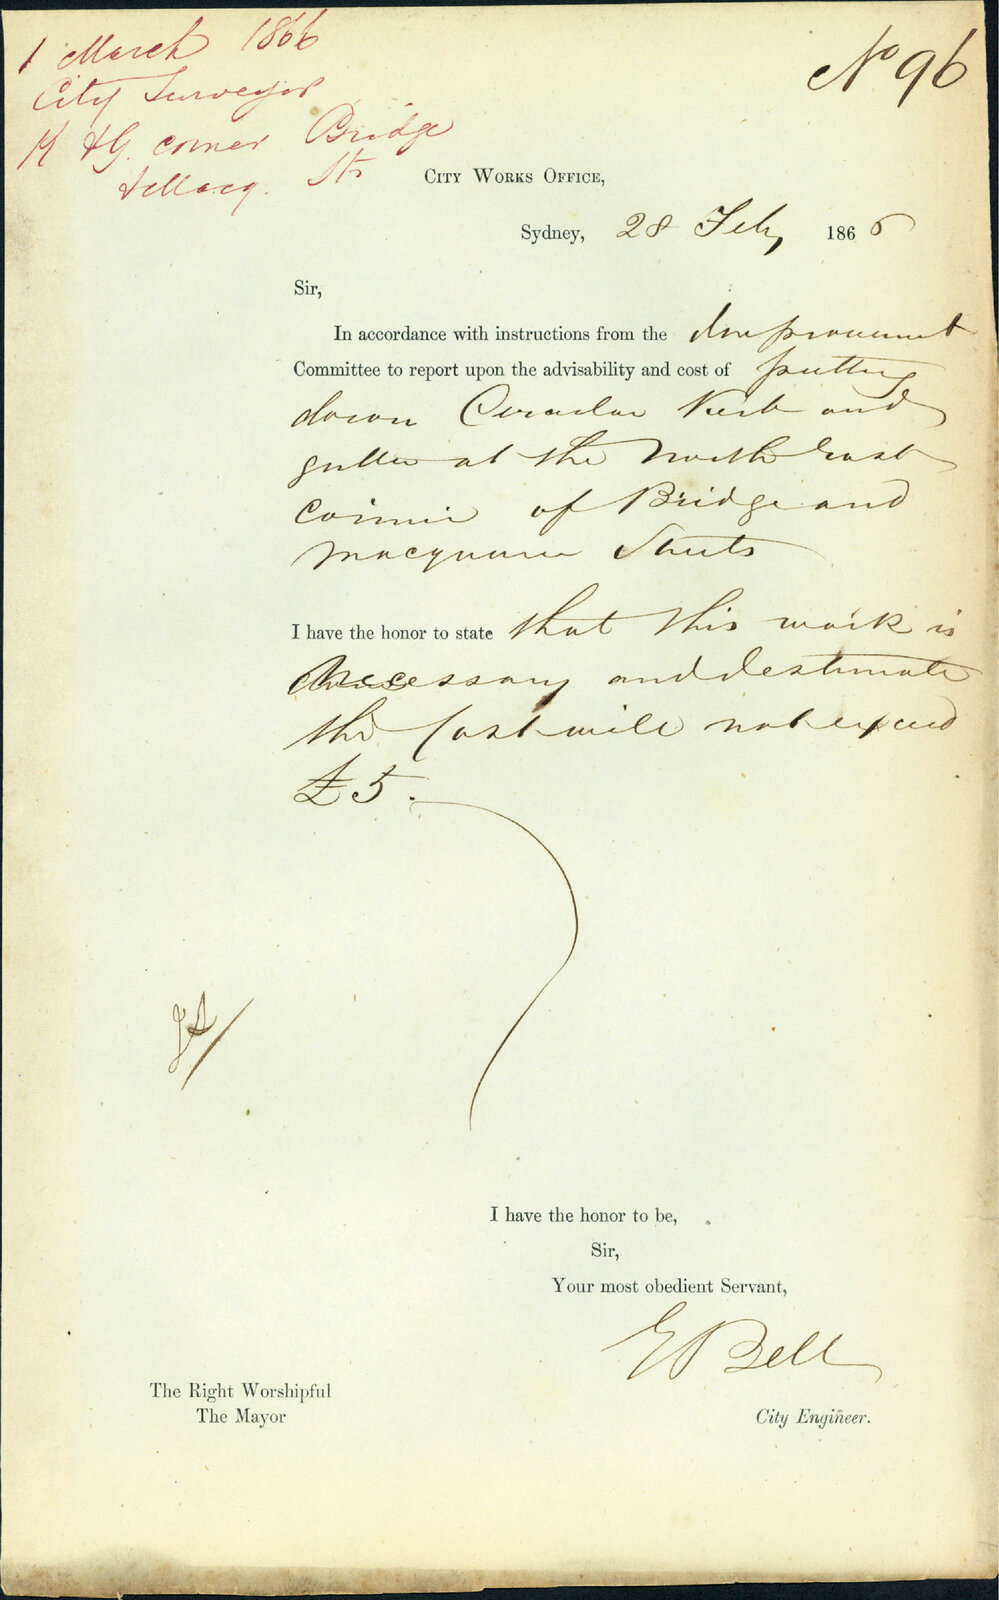 1 March 1866
City Surveyor
K & G. corner Bridge
& Macq. Sts
No 96
City Works Office,
Sydney, 28 Feby 1866
Sir,
In accordance with instructions from the Improvement
Committee to report upon the advisability and cost of putting
down Circular Kerb and
gutter at the North East
Corner of Bridge and
Macquarie Streets
I have the honor to state that this work is
Necessary and I estimate
the Cost will not exceed
£5.
I have the honor to be,
Sir,
Your most obedient Servant,
E Bell
The Right Worshipful
The Mayor
City Engineer.